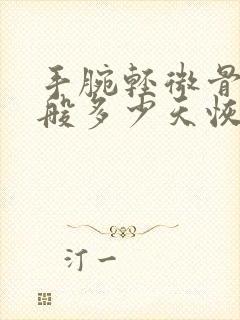 手腕轻微骨
般多少天恢
汀一